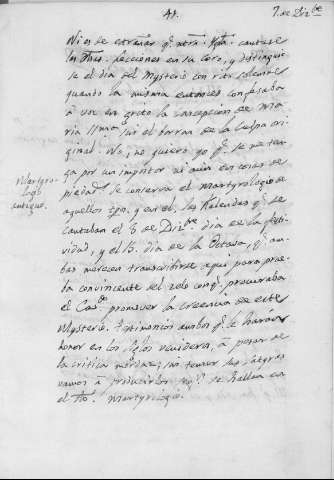 41.
7. de Dizbe
Ni es de estrañar q. ntra. Yga. cantase
los Divs. Lecciones en su Coro, y distinguie
se el dia del Mysterio con rito solemne
quando la misma entonces confesaba
à voz en grito la concepcion de Ma
ria SSma. sin el borron de la Culpa ori
ginal. No, no quiero yo q. se me ten
ga por un impostor ni aun en cosas de
piedad. Se conserva el Martyrologio de
aquellos tpos. y en el, las Kalendas q. se
cantaban el 8 de Dizbre. dia de la festi
vidad, y el 15. dia de la Octava, q. am
bas merecen transcribirse aqui para prue
ba convincente del zelo con q. procuraba
el Cavdo. promover la creencia de este
Mysterio. Testimonios ambos q. le haràn
honor en los siglos venideros, à pesar de
la critica mordaz; sin temer sus
vamos à producirlos segn. se hallan en
el dho. Martyrologio.
Martyro
logio
antiguo.